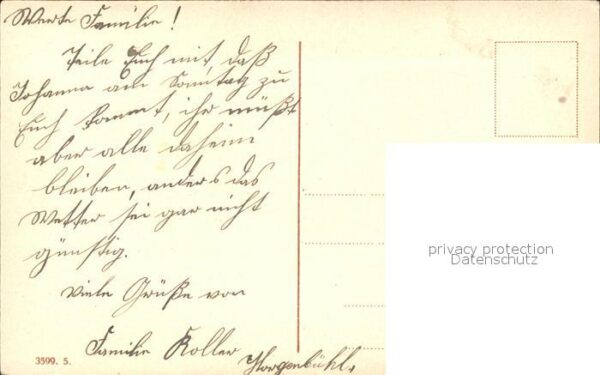 Werte Familie!
Teile Euch mit, daß
Johanna am Sonntag zu
Euch kommt, ihr müßt
aber alle daheim
bleiben, anders das
Wetter sei gar nicht
günstig.
Viele Grüße von
Familie Koller Horgenbühl.
3599. 5.
privacy protection
Datenschutz